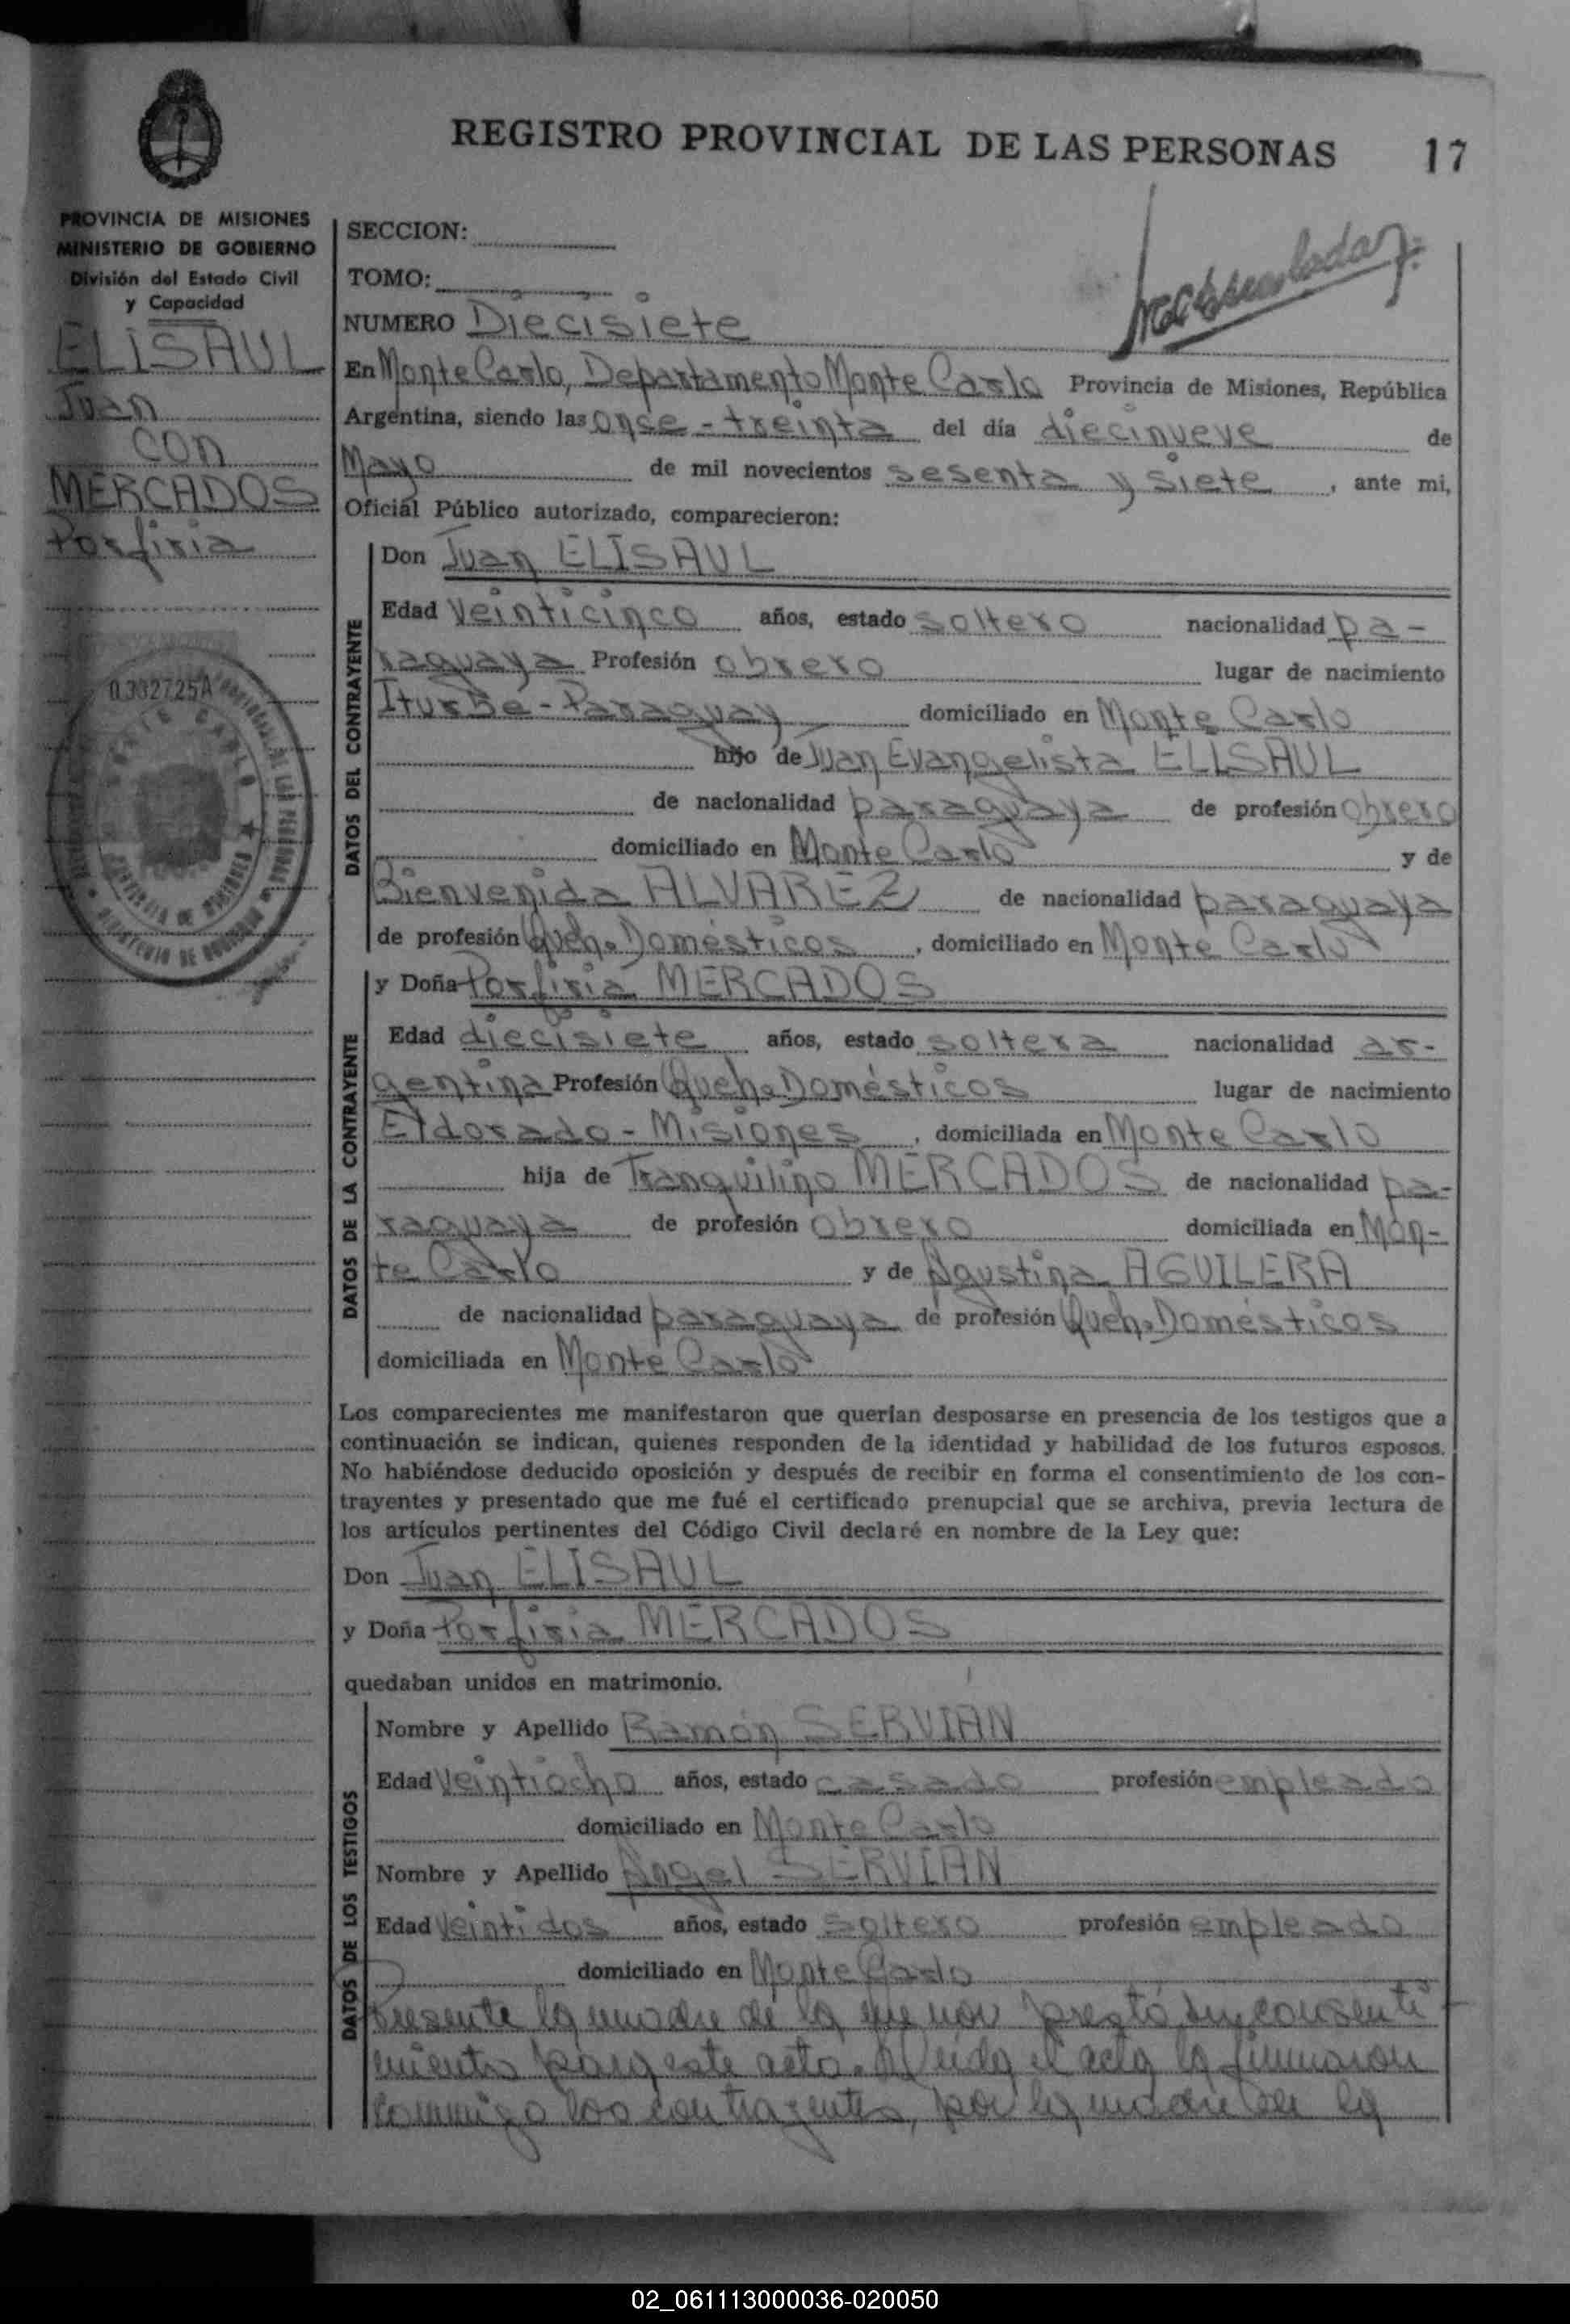 REGISTRO PROVINCIAL DE LAS PERSONAS 17
PROVINCIA DE MISIONES
MINISTERIO DE GOBIERNO
División del Estado Civil
y Capacidad
ELISAUL
Juan
con
MERCADOS
Porfiria
0.332725A
SECCION:
TOMO:
NUMERO Diecisiete
En Monte Carlo, Departamento Monte Carlo Provincia de Misiones, República
Argentina, siendo las once - treinta del día diecinueve de
Mayo de mil novecientos sesenta y siete, ante mi,
Oficial Público autorizado, comparecieron:
DATOS DEL CONTRAYENTE
Don Juan ELISAUL
Edad Veinticinco años, estado soltero nacionalidad pa-
raguaya Profesión obrero lugar de nacimiento
Iturbe - Paraguay domiciliado en Monte Carlo
hijo de Juan Evangelista ELISAUL
de nacionalidad paraguaya de profesión obrero
domiciliado en Monte Carlo y de
Bienvenida ALVAREZ de nacionalidad paraguaya
de profesión Queh. Domésticos, domiciliado en Monte Carlo
DATOS DE LA CONTRAYENTE
y Doña Porfiria MERCADOS
Edad diecisiete años, estado soltera nacionalidad ar-
gentina Profesión Queh. Domésticos lugar de nacimiento
Eldorado - Misiones, domiciliada en Monte Carlo
hija de Tranquilino MERCADOS de nacionalidad pa-
raguaya de profesión obrero domiciliada en Mon-
te Carlo y de Agustina AGUILERA
de nacionalidad paraguaya de profesión Queh. Domésticos
domiciliada en Monte Carlo
Los comparecientes me manifestaron que querían desposarse en presencia de los testigos que a
continuación se indican, quienes responden de la identidad y habilidad de los futuros esposos.
No habiéndose deducido oposición y después de recibir en forma el consentimiento de los con-
trayentes y presentado que me fué el certificado prenupcial que se archiva, previa lectura de
los artículos pertinentes del Código Civil declaré en nombre de la Ley que:
Don Juan ELISAUL
y Doña Porfiria MERCADOS
quedaban unidos en matrimonio.
DATOS DE LOS TESTIGOS
Nombre y Apellido Ramón SERVIAN
Edad Veintiocho años, estado casado profesión empleado
domiciliado en Monte Carlo
Nombre y Apellido Angel SERVIAN
Edad Veintidos años, estado soltero profesión empleado
domiciliado en Monte Carlo
Presente la madre de la menor prestó su consenti-
miento para este acto. Leida el acta la firmaron
conmigo los contrayentes, por la madre de la
02_061113000036-020050